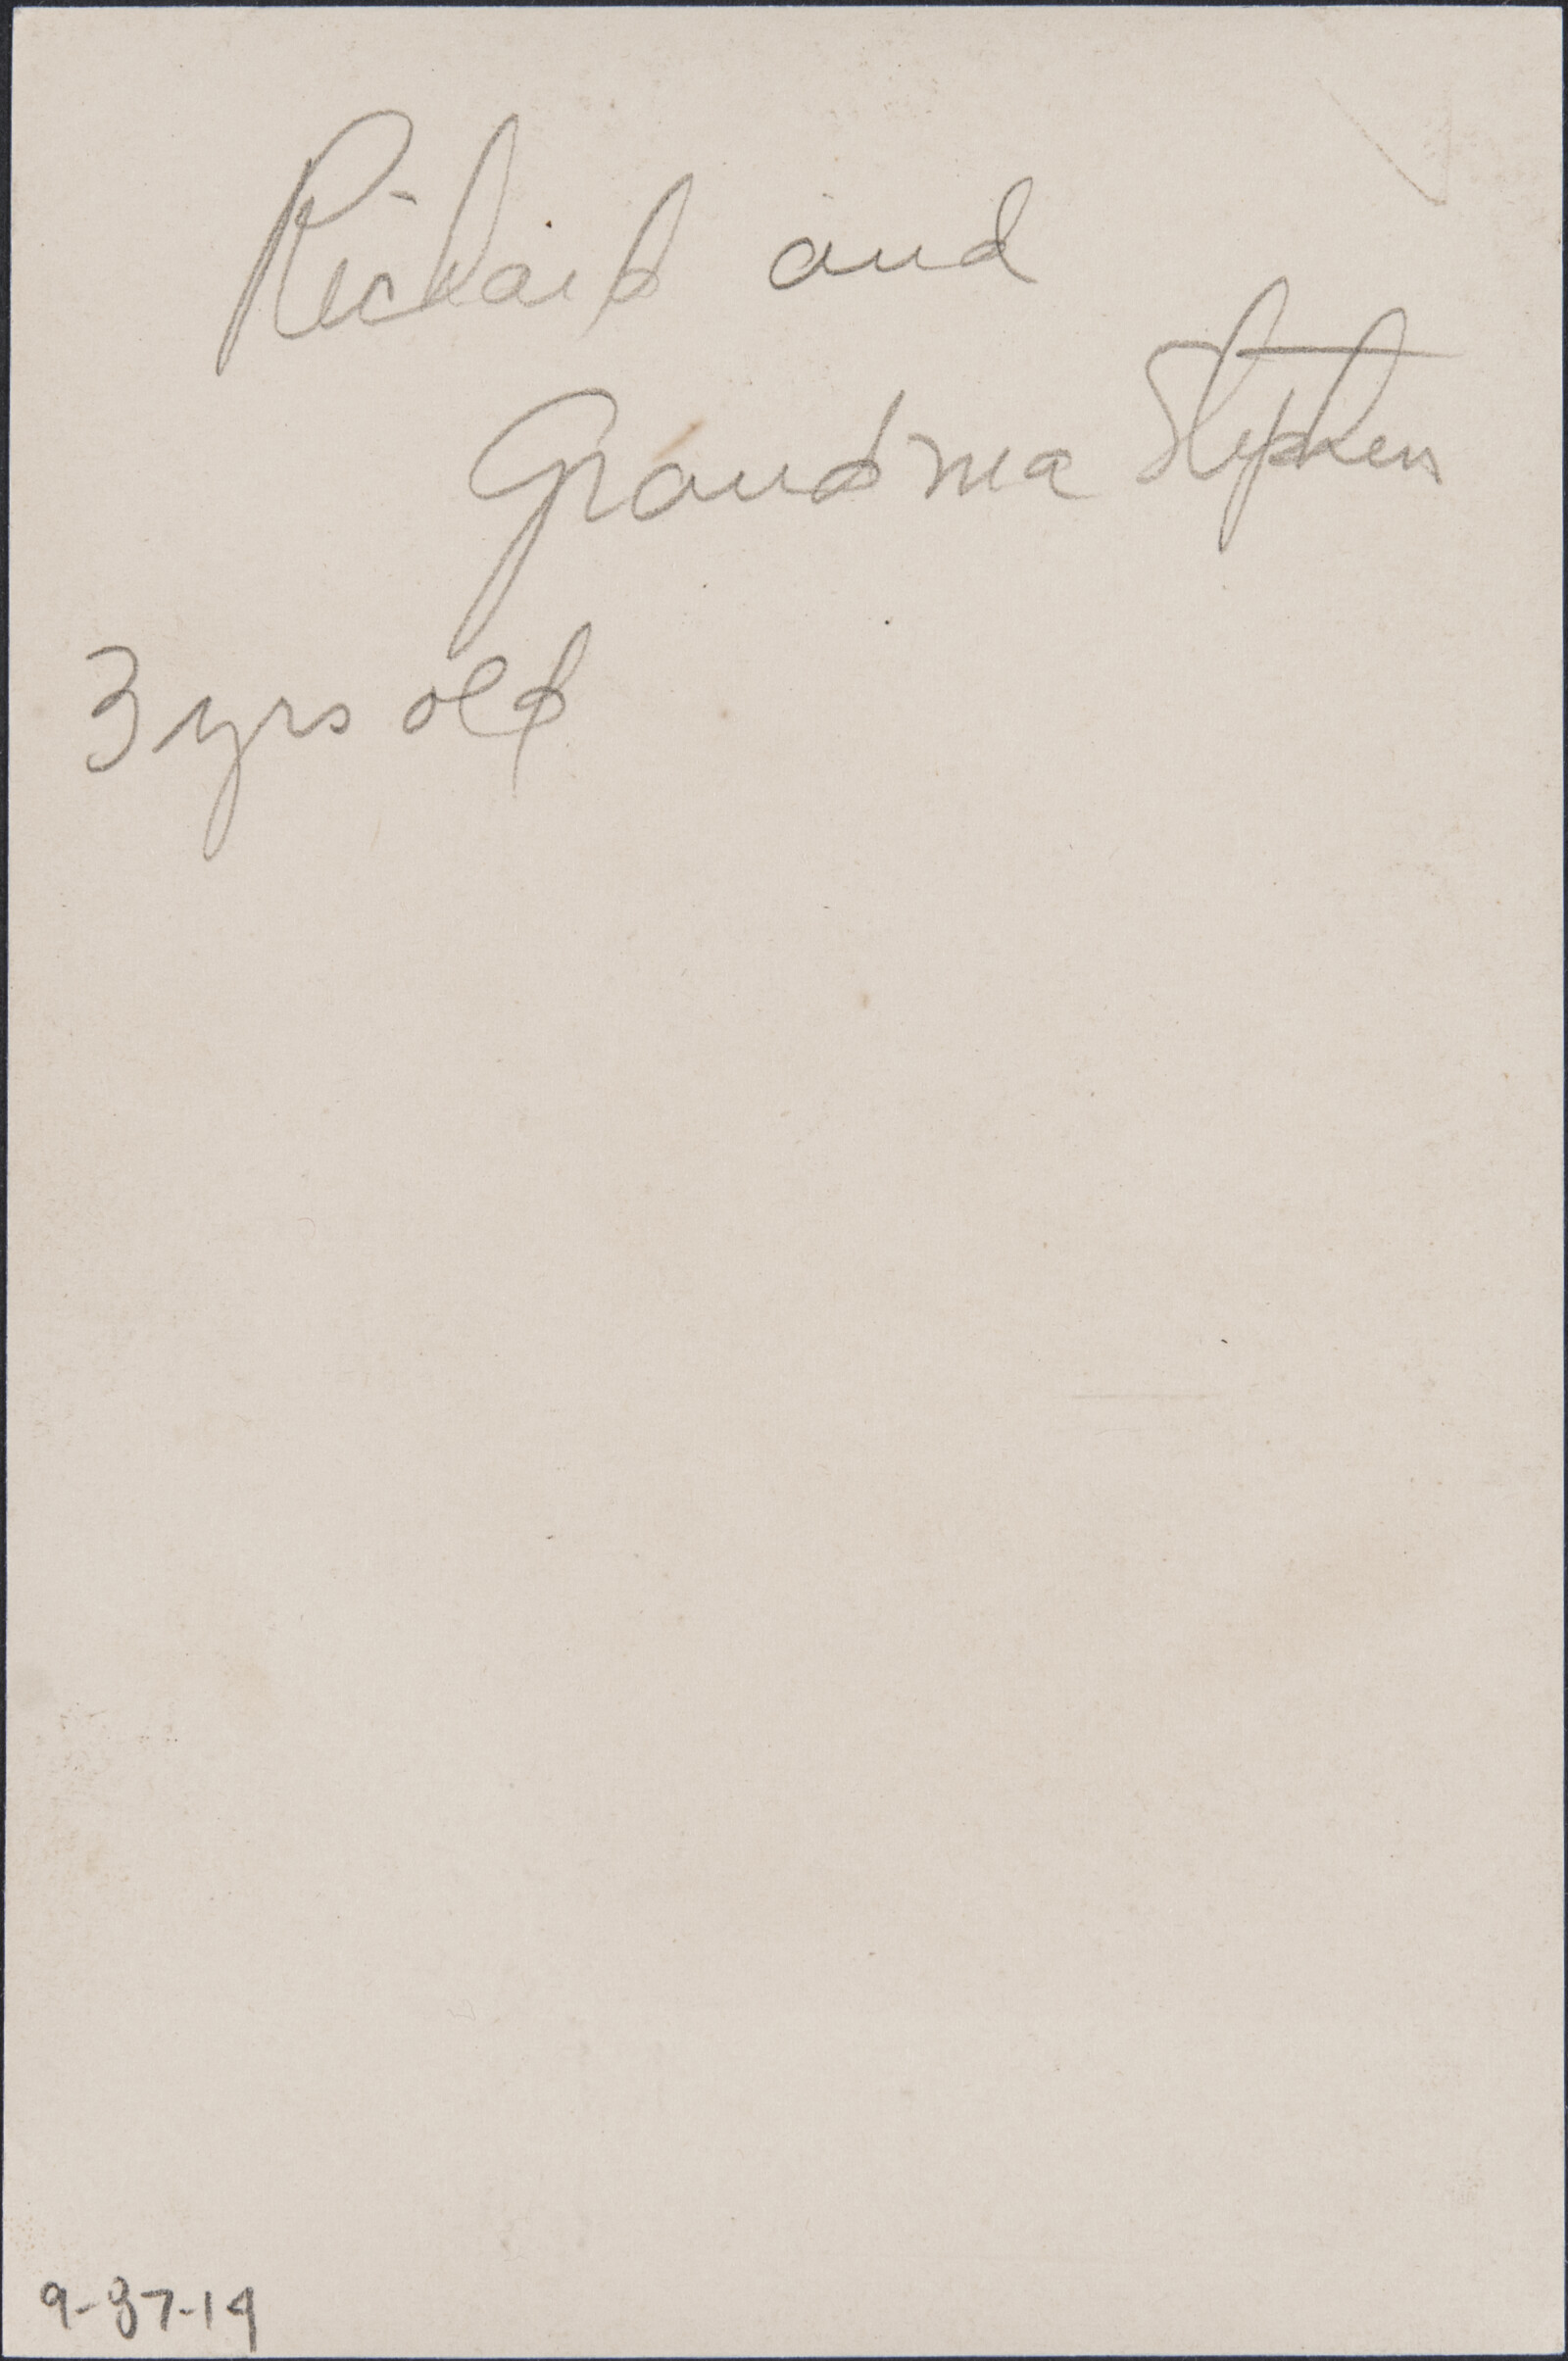 Richard and
Grandma Stephen
3 yrs old
9-87-19